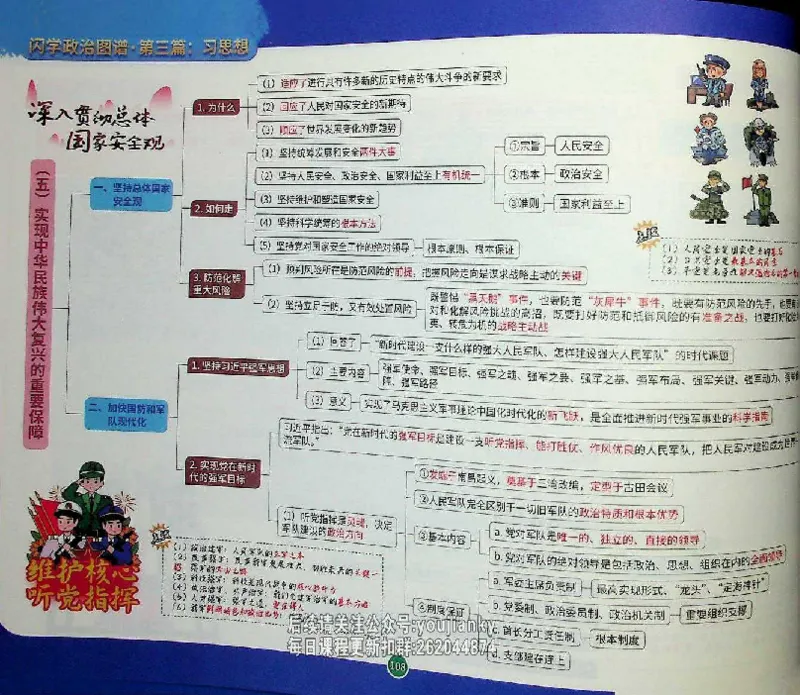 闪学政治图谱·第三篇：习思想
深入贯彻总体
国家安全观
（五）实现中华民族伟大复兴的重要保障
一、坚持总体国家安全观
1. 为什么
（1）适应了进行具有许多新的历史特点的伟大斗争的新要求
（2）回应了人民对国家安全的新期待
（3）顺应了世界发展变化的新趋势
2. 如何走
（1）坚持统筹发展和安全两件大事
（2）坚持人民安全、政治安全、国家利益至上有机统一
①宗旨
人民安全
②根本
政治安全
③准则
国家利益至上
（3）坚持维护和塑造国家安全
（4）坚持科学统筹的根本方法
（5）坚持党对国家安全工作的绝对领导
根本原则、根本保证
3. 防范化解重大风险
（1）预判风险所在是防范风险的前提，把握风险走向是谋求战略主动的关键
（2）坚持立足于防，又有效处置风险
既警惕“黑天鹅”事件，也要防范“灰犀牛”事件，既要有防范风险的先手，也要有
对和化解风险挑战的高招，既要打好防范和抵御风险的有准备之战，也要打好化险
夷、转危为机的战略主动战
二、加快国防和军队现代化
1. 坚持习近平强军思想
（1）回答了
“新时代建设一支什么样的强大人民军队、怎样建设强大人民军队”的时代课题
（2）主要内容
强军使命、强军目标、强军之魂、强军之要、强军之基、强军布局、强军关键、强军动力、强军
强军路径
（3）意义
实现了马克思主义军事理论中国化时代化的新飞跃，是全面推进新时代强军事业的科学指南
2. 实现党在新时代的强军目标
习近平指出：“党在新时代的强军目标是建设一支听党指挥、能打胜仗、作风优良的人民军队，把人民军队建设成为世界一
流军队。”
（1）听党指挥是灵魂，决定
军队建设的政治方向
①发端于南昌起义，奠基于三湾改编，定型于古田会议
②人民军队完全区别于一切旧军队的政治特质和根本优势
③基本内容
a. 党对军队是唯一的、独立的、直接的领导
b. 党对军队的绝对领导是包括政治、思想、组织在内的全面领导
④制度保证
a. 军委主席负责制
最高实现形式、“龙头”、“定海神针”
b. 党委制、政治委员制、政治机关制
重要组织支撑
c. 首长分工责任制
根本制度
d. 支部建在连上
维护核心
听党指挥
后续请关注公众号:youjianky
每日课程更新扣群:262044874
108